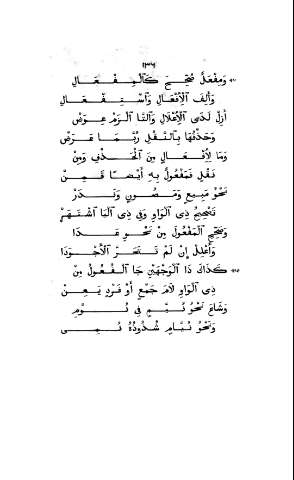 ١٣٦
وَمِفْعَلٌ صُحِّحَ كَالْمِفْعَالِ
وَأَلِفَ الْإِفْعَالِ وَاسْتِفْعَالِ
أَزِلْ لِذَا الْإِعْلَالِ وَالتَّا الْزَمْ عِوَضْ
وَحَذْفُهَا بِالنَّقْلِ رُبَّمَا عَرَضْ
وَمَا لِإِفْعَالٍ مِنَ الْحَذْفِ وَمِنْ
نَقْلٍ فَمَفْعُولٌ بِهِ أَيْضًا قَمِنْ
نَحْوُ مَبِيعٍ وَمَصُونٍ وَنَدَرْ
تَصْحِيحُ ذِي الْوَاوِ وَفِي ذِي الْيَا اشْتَهَرْ
وَصَحِّحِ الْمَفْعُولَ مِنْ نَحْوِ عَدَا
وَأَعْلِلْ إِنْ لَمْ تَتَحَرَّ الْأَجْوَدَا
كَذَاكَ ذَا الْوَجْهَيْنِ جَا الْفُعُولُ مِنْ
ذِي الْوَاوِ لَامَ جَمْعٍ أَوْ فَرْدٍ يَعِنْ
وَشَاعَ نَحْوُ نُيَّمٍ فِي نُوَّمِ
وَنَحْوُ نُيَّامٍ شُذُوذُهُ نُمِي